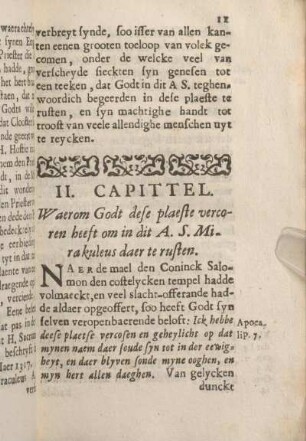 11
verbreyt synde, soo isser van allen kan-
ten eenen grooten toeloop van volck ge-
comen, onder de welcke veel van
verscheyde sieckten syn genesen tot
een teeken, dat Godt in dit A S. teghen-
woordich begeerden in dese plaeste te
rusten, en syn machtighe handt tot
troost van veele allendighe menschen uyt
te reycken.
II. CAPITTEL.
Waerom Godt dese plaeste verco-
ren heeft om in dit A. S. Mi-
rakuleus daer te rusten.
NAER de mael den Coninck Salo-
mon den costelycken tempel hadde
volmaeckt, en veel slacht-offerande had-
de aldaer opgeoffert, soo heeft Godt syn
selven veropenbaerende beloft: Ick hebbe
deese plaetse vercosen en geheylicht op dat
mynen naem daer soude syn tot in der eewig-
heyt, en daer blyven soude myne ooghen, en
myn hert allen daeghen. Van gelycken
duncke
Apoca.
lip. 7.